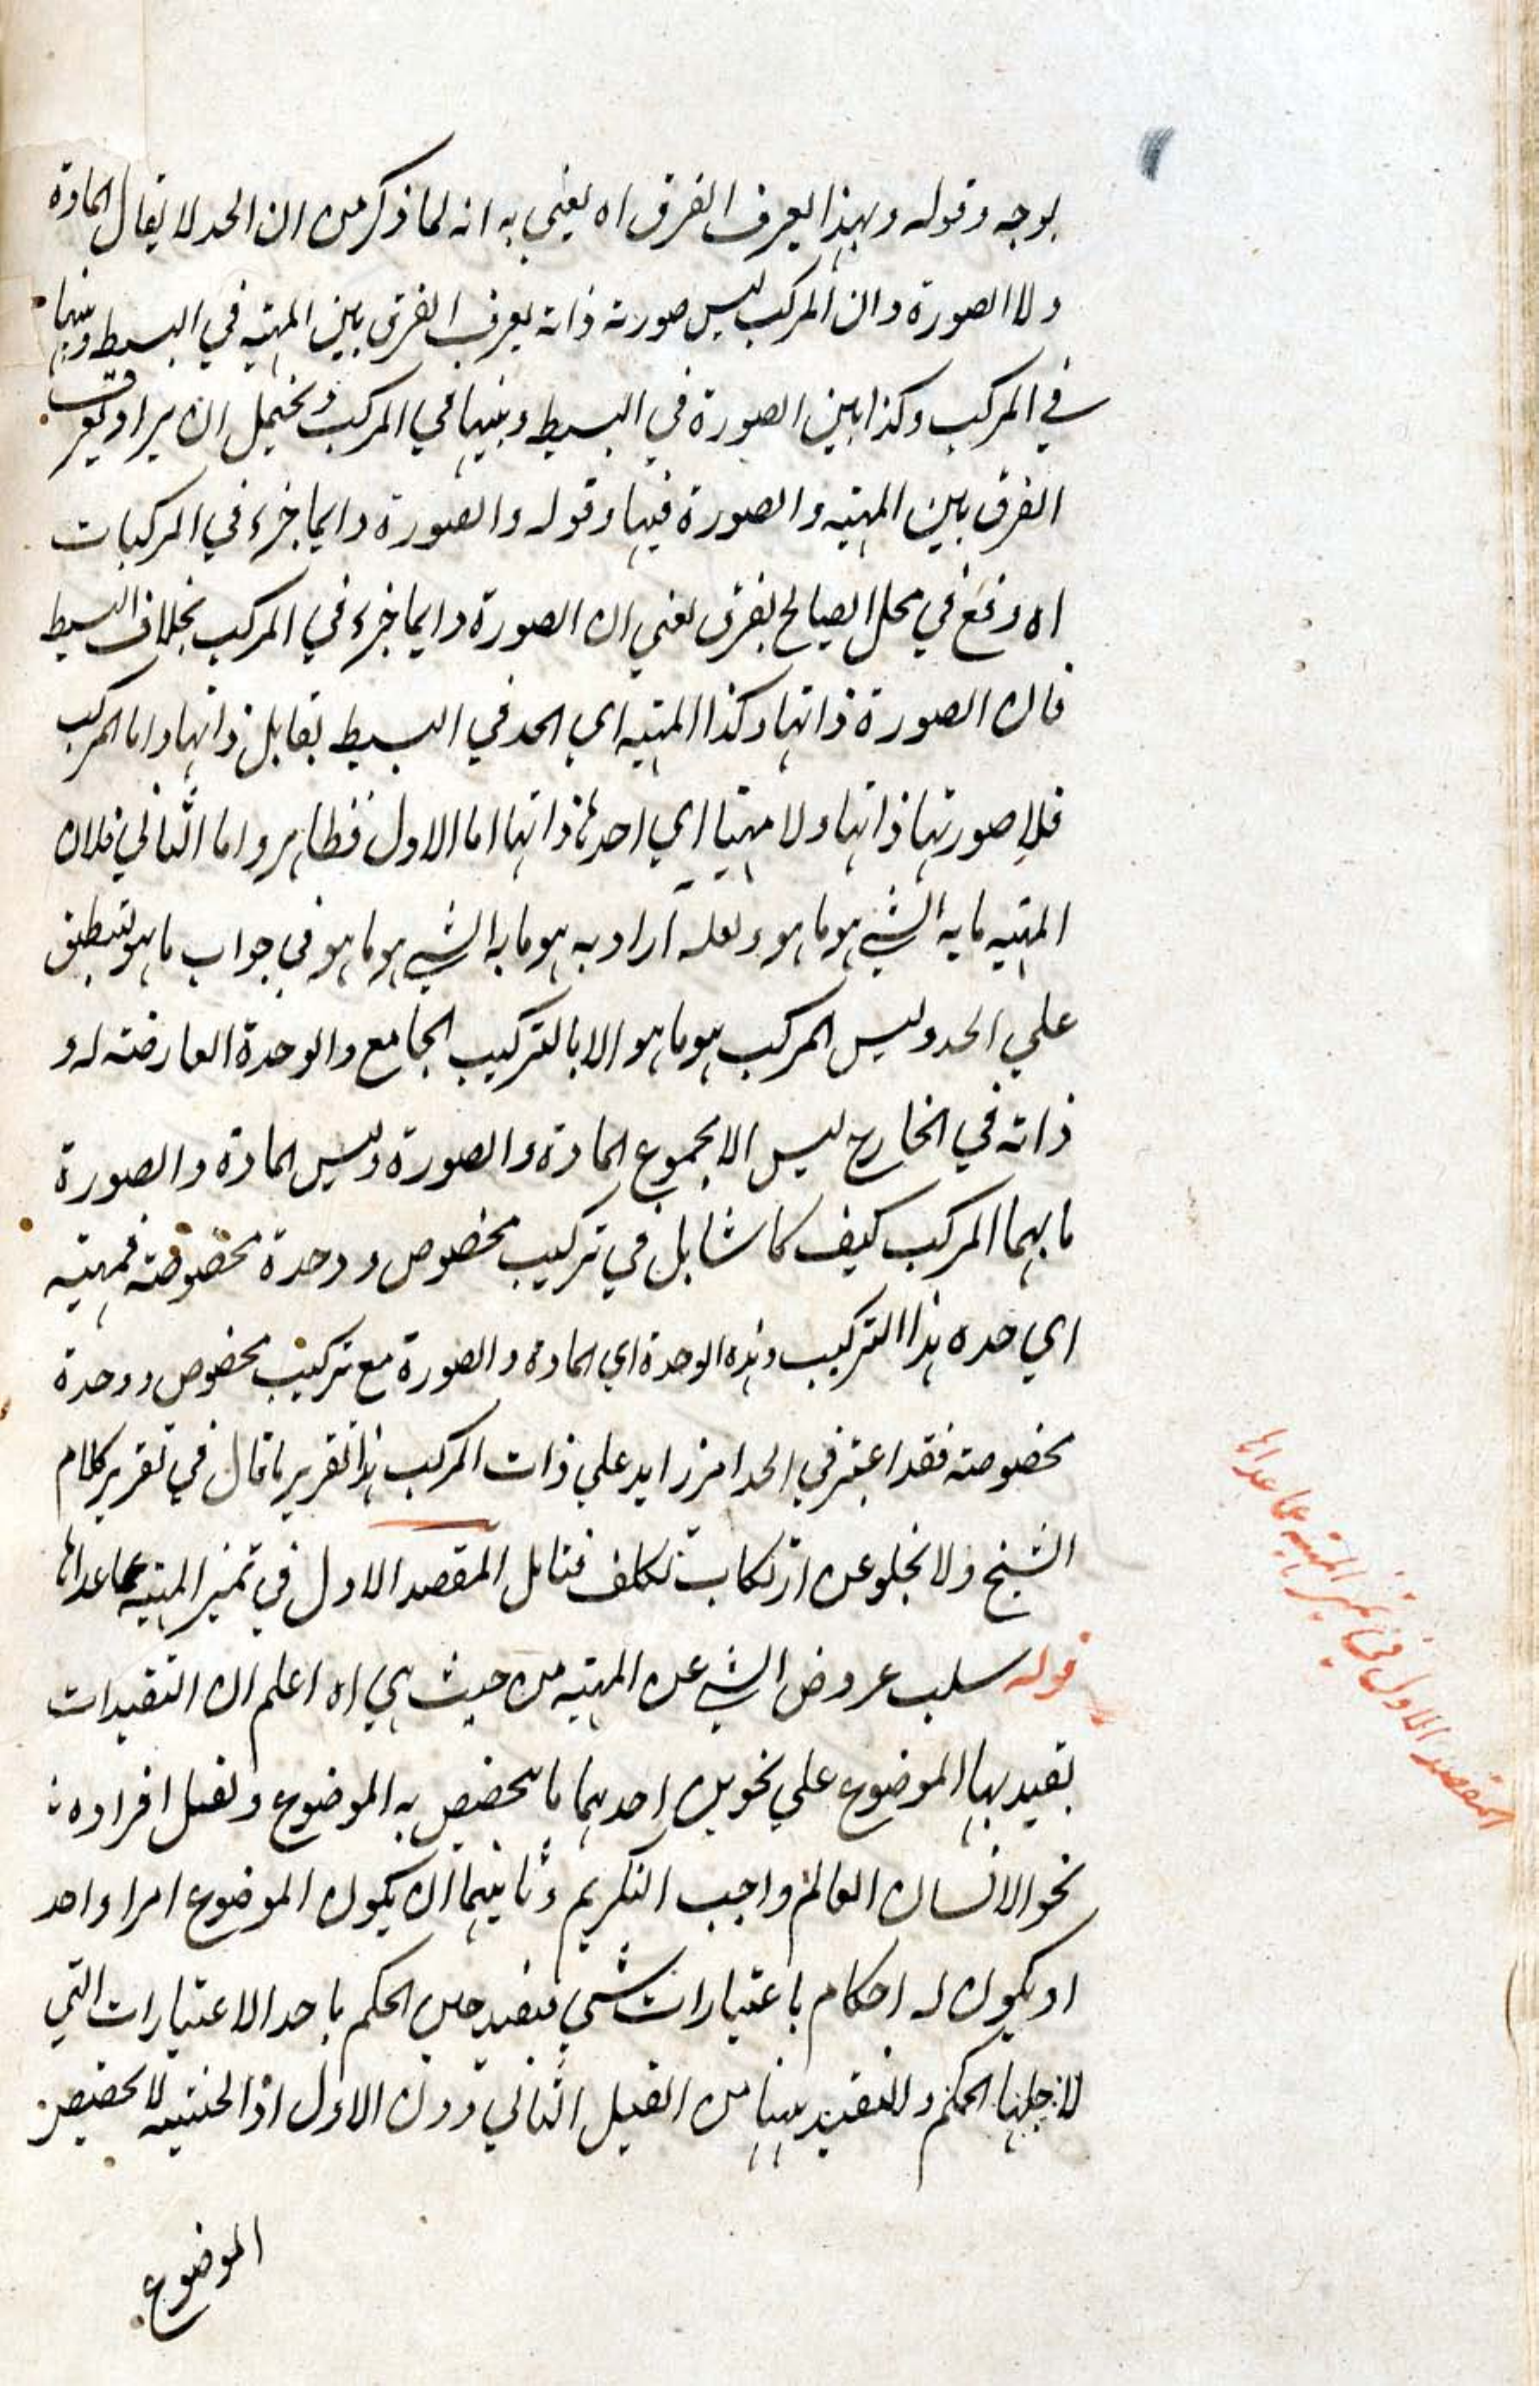 بوجه وقوله وبهذا يعرف الفرق اه يعني به انه لما ذكر من ان الحد لا يقال المادة
ولا الصورة وان المركب ليس صورته ذاته يعرف الفرق بين المهية في البسيط وبينها
في المركب وكذا بين الصورة في البسيط وبينها في المركب ويحتمل ان يراد ويعرف
الفرق بين المهية والصورة فيها وقوله والصورة دايما جزء في المركبات
اه وقع في محل ايضاح لفرق يعني ان الصورة دايما جزء في المركب بخلاف البسيط
فان الصورة ذاتها وكذا المهية اي الحد في البسيط يقابل ذاتها واما المركب
فلا صورتها ذاتها ولا مهيتها اي احدها ذاتها اما الاول فظاهر واما الثاني فلان
المهية ما به الشي هو ما هو ولعله اراد به هو ما به الشي هو ما هو في جواب ما هو لينطبق
علي الحد وليس المركب هو ما هو الا بالتركيب الجامع والوحدة العارضة له و
ذاته في الخارج ليس الا مجموع المادة والصورة وليس المادة والصورة
ما بهما المركب كيف كانتا بل في تركيب مخصوص ووحدة مخصوصة فمهيته
اي حده هذا التركيب وهذه الوحدة اي المادة والصورة مع تركيب مخصوص ووحدة
مخصوصة فقد اعتبر في الحد امر زايد علي ذات المركب هذا تقرير ما قال في تقرير كلام
الشيخ ولا يخلو عن ارتكاب تكلف فتامل المقصد الاول في تميز المهية عما عداها
قوله سلب عروض الشي عن المهية من حيث هي اه اعلم ان التقيدات
يقيد بها الموضوع علي نحوين احدهما ما يخصص به الموضوع ويقل افراده
نحو الانسان العالم واجب التكريم وثانيهما ان يكون الموضوع امرا واحد
او يكون له احكام باعتبارات شتي فيقيد حين الحكم باحد الاعتبارات التي
لاجلها الحكم والتقيد هنا من القبيل الثاني دون الاول اذ الحيثية لا يخصص
الموضوع
المقصد الاول في تميز المهية عما عداها